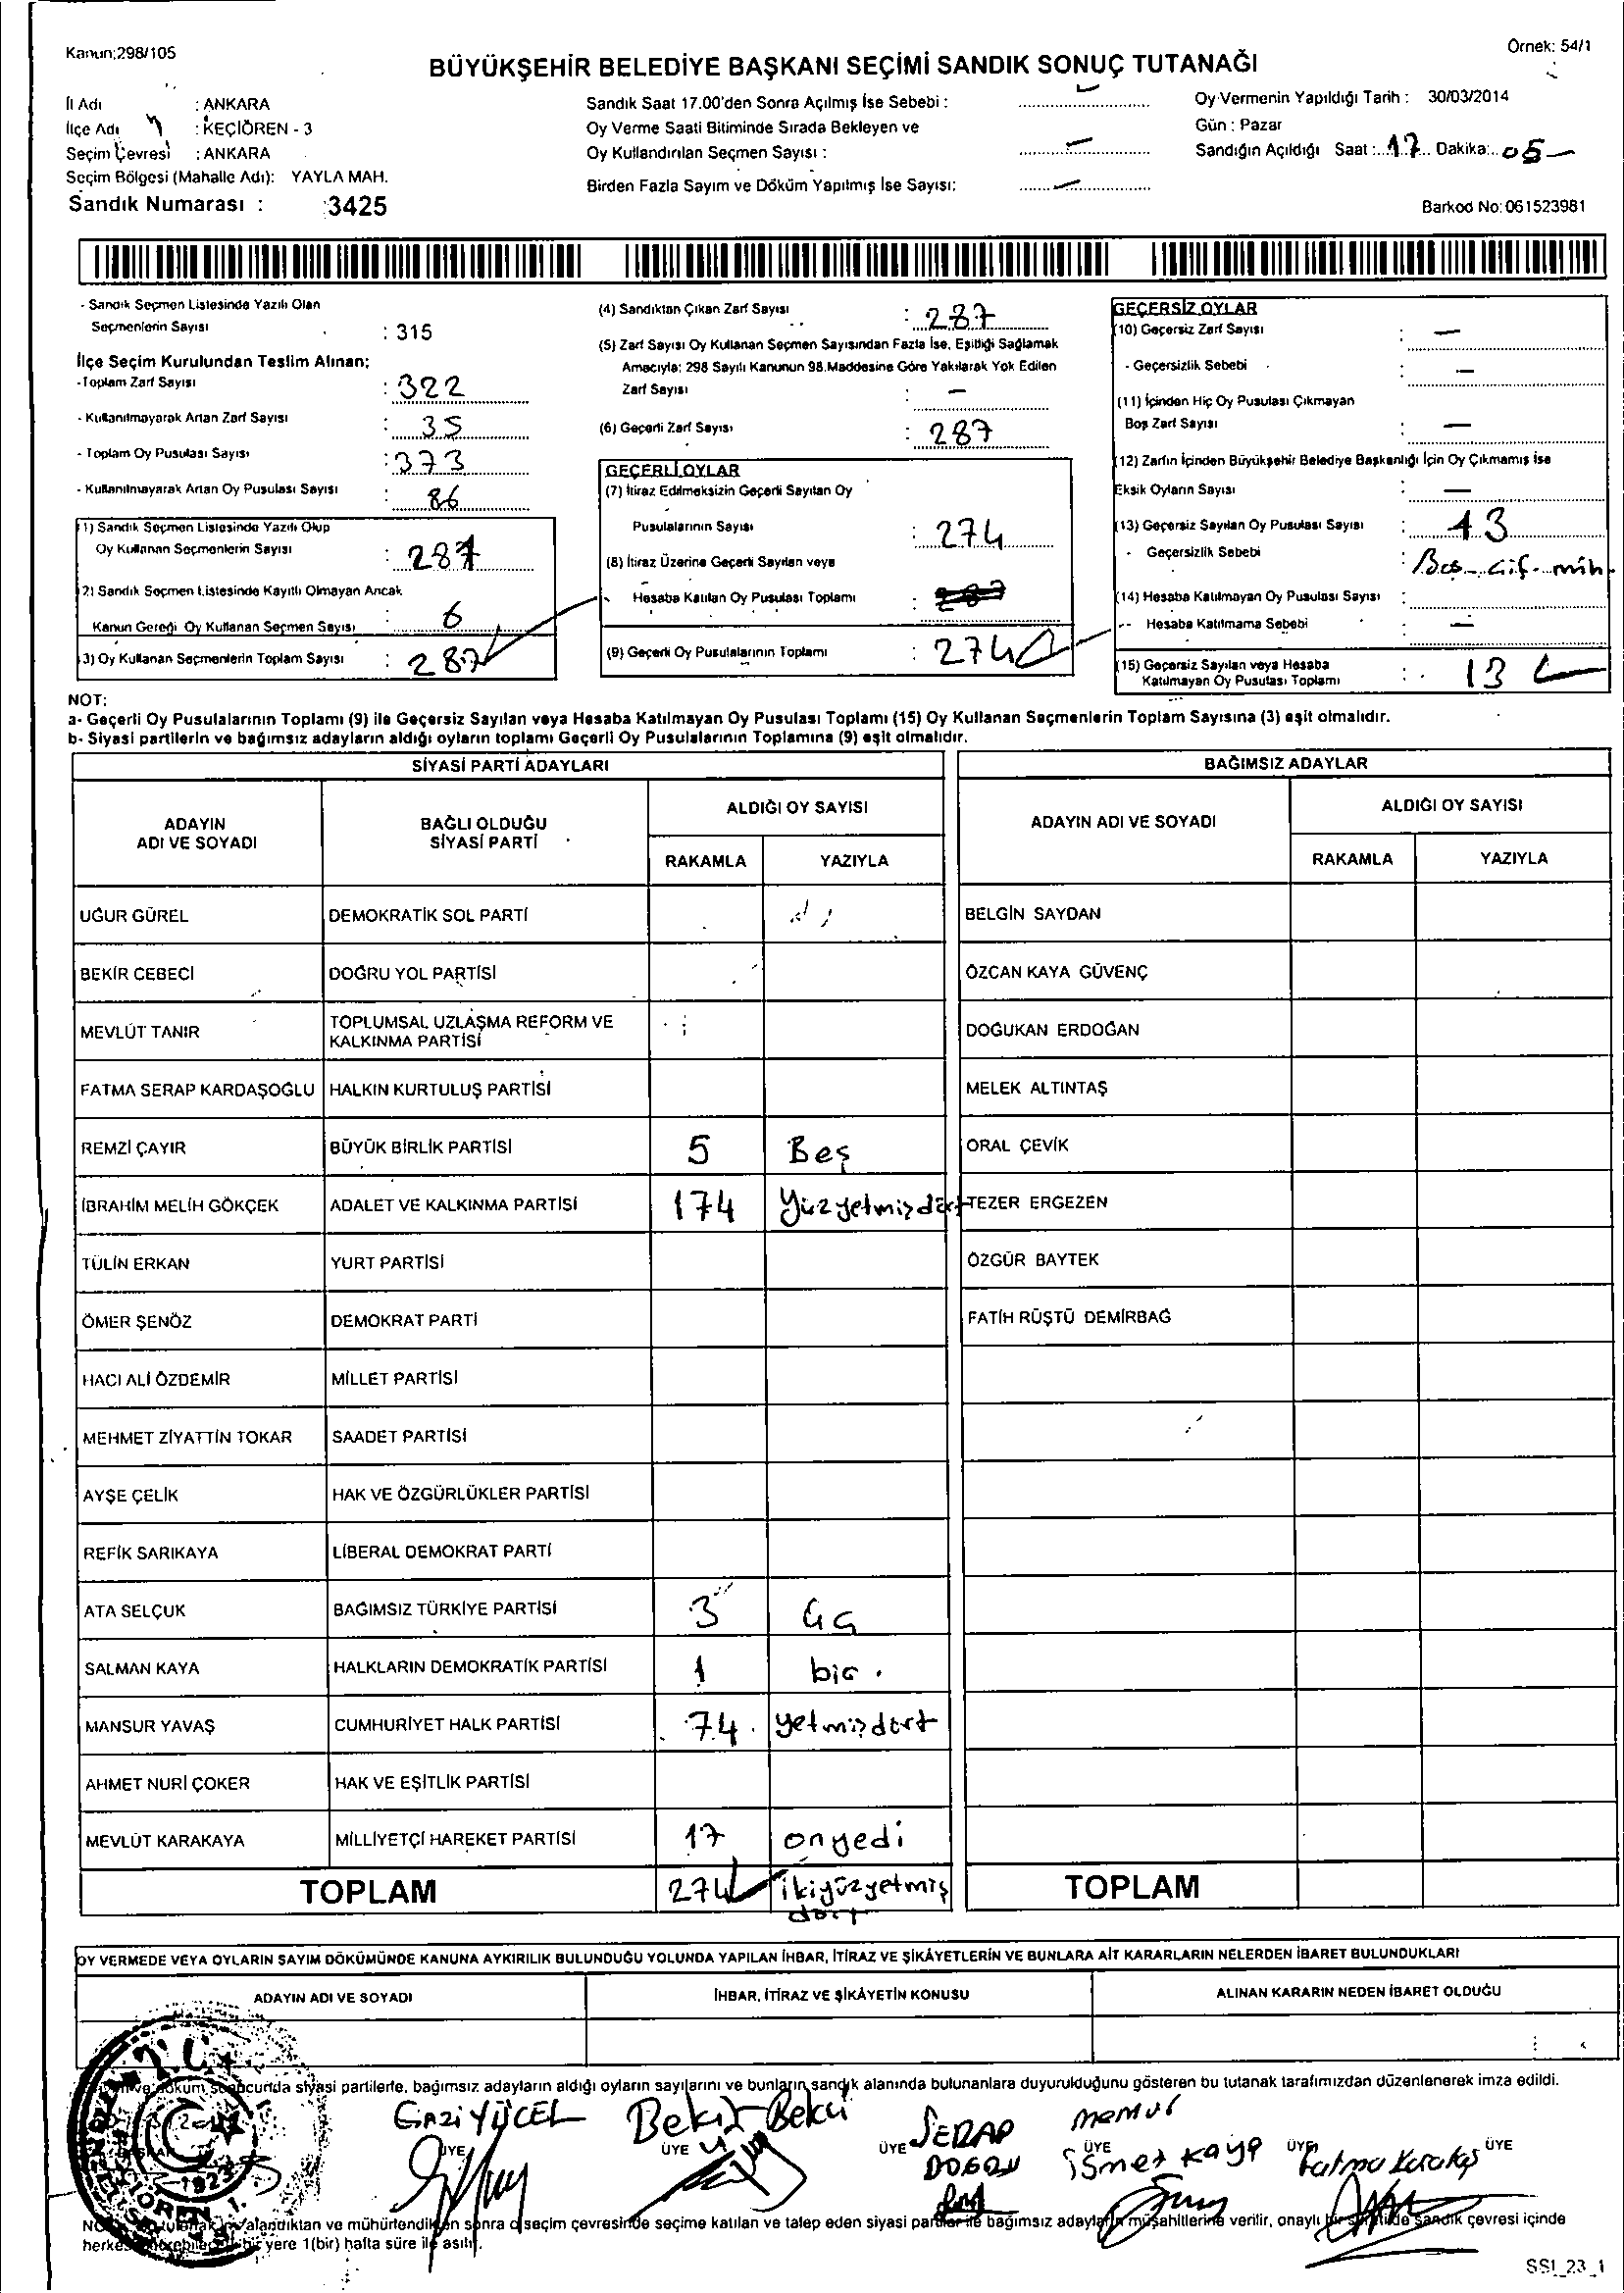 Kanun:298/105
Örnek: 54/1
BÜYÜKŞEHİR BELEDİYE BAŞKANI SEÇİMİ SANDIK SONUÇ TUTANAĞI
İl Adı : ANKARA
İlçe Adı : KEÇİÖREN - 3
Seçim Çevresi : ANKARA
Seçim Bölgesi (Mahalle Adı): YAYLA MAH.
Sandık Numarası : 3425
Sandık Saat 17.00'den Sonra Açılmış İse Sebebi : –
Oy Verme Saati Bitiminde Sırada Bekleyen ve
Oy Kullandırılan Seçmen Sayısı : –
Birden Fazla Sayım ve Döküm Yapılmış İse Sayısı: –
Oy Vermenin Yapıldığı Tarih : 30/03/2014
Gün : Pazar
Sandığın Açıldığı Saat : 17 Dakika: 05
Barkod No: 061523981
- Sandık Seçmen Listesinde Yazılı Olan
Seçmenlerin Sayısı : 315
İlçe Seçim Kurulundan Teslim Alınan:
-Toplam Zarf Sayısı : 322
- Kullanılmayarak Artan Zarf Sayısı : 35
- Toplam Oy Pusulası Sayısı : 373
- Kullanılmayarak Artan Oy Pusulası Sayısı : 86
1) Sandık Seçmen Listesinde Yazılı Olup
Oy Kullanan Seçmenlerin Sayısı : 287
2) Sandık Seçmen Listesinde Kayıtlı Olmayan Ancak
Kanun Gereği Oy Kullanan Seçmen Sayısı : 6
3) Oy Kullanan Seçmenlerin Toplam Sayısı : 287
(4) Sandıktan Çıkan Zarf Sayısı : 287
(5) Zarf Sayısı Oy Kullanan Seçmen Sayısından Fazla İse, Eşitliği Sağlamak
Amacıyla; 298 Sayılı Kanunun 98.Maddesine Göre Yakılarak Yok Edilen
Zarf Sayısı : –
(6) Geçerli Zarf Sayısı : 287
GEÇERLİ OYLAR
(7) İtiraz Edilmeksizin Geçerli Sayılan Oy
Pusulalarının Sayısı : 274
(8) İtiraz Üzerine Geçerli Sayılan veya
Hesaba Katılan Oy Pusulası Toplamı :
(9) Geçerli Oy Pusulalarının Toplamı : 274
GEÇERSİZ OYLAR
(10) Geçersiz Zarf Sayısı : –
- Geçersizlik Sebebi : –
(11) İçinden Hiç Oy Pusulası Çıkmayan
Boş Zarf Sayısı : –
(12) Zarfın İçinden Büyükşehir Belediye Başkanlığı İçin Oy Çıkmamış İse
Eksik Oyların Sayısı : –
(13) Geçersiz Sayılan Oy Pusulası Sayısı : 13
- Geçersizlik Sebebi :
(14) Hesaba Katılmayan Oy Pusulası Sayısı :
-- Hesaba Katılmama Sebebi : –
(15) Geçersiz Sayılan veya Hesaba
Katılmayan Oy Pusulası Toplamı : 13
NOT:
a- Geçerli Oy Pusulalarının Toplamı (9) ile Geçersiz Sayılan veya Hesaba Katılmayan Oy Pusulası Toplamı (15) Oy Kullanan Seçmenlerin Toplam Sayısına (3) eşit olmalıdır.
b- Siyasi partilerin ve bağımsız adayların aldığı oyların toplamı Geçerli Oy Pusulalarının Toplamına (9) eşit olmalıdır.
SİYASİ PARTİ ADAYLARI
ADAYIN
ADI VE SOYADI
BAĞLI OLDUĞU
SİYASİ PARTİ
ALDIĞI OY SAYISI
RAKAMLA YAZIYLA
UĞUR GÜREL DEMOKRATİK SOL PARTİ
BEKİR CEBECİ DOĞRU YOL PARTİSİ
MEVLÜT TANIR TOPLUMSAL UZLAŞMA REFORM VE
KALKINMA PARTİSİ
FATMA SERAP KARDAŞOĞLU HALKIN KURTULUŞ PARTİSİ
REMZİ ÇAYIR BÜYÜK BİRLİK PARTİSİ 5 Beş
İBRAHİM MELİH GÖKÇEK ADALET VE KALKINMA PARTİSİ 174 Yüzyetmişdört
TÜLİN ERKAN YURT PARTİSİ
ÖMER ŞENÖZ DEMOKRAT PARTİ
HACI ALİ ÖZDEMİR MİLLET PARTİSİ
MEHMET ZİYATTİN TOKAR SAADET PARTİSİ
AYŞE ÇELİK HAK VE ÖZGÜRLÜKLER PARTİSİ
REFİK SARIKAYA LİBERAL DEMOKRAT PARTİ
ATA SELÇUK BAĞIMSIZ TÜRKİYE PARTİSİ 3 üç
SALMAN KAYA HALKLARIN DEMOKRATİK PARTİSİ 1 bir
MANSUR YAVAŞ CUMHURİYET HALK PARTİSİ 74 yetmişdört
AHMET NURİ ÇOKER HAK VE EŞİTLİK PARTİSİ
MEVLÜT KARAKAYA MİLLİYETÇİ HAREKET PARTİSİ 17 onyedi
TOPLAM 274 ikiyüzyetmiş
dört
BAĞIMSIZ ADAYLAR
ADAYIN ADI VE SOYADI
ALDIĞI OY SAYISI
RAKAMLA YAZIYLA
BELGİN SAYDAN
ÖZCAN KAYA GÜVENÇ
DOĞUKAN ERDOĞAN
MELEK ALTINTAŞ
ORAL ÇEVİK
TEZER ERGEZEN
ÖZGÜR BAYTEK
FATİH RÜŞTÜ DEMİRBAĞ
TOPLAM
OY VERMEDE VEYA OYLARIN SAYIM DÖKÜMÜNDE KANUNA AYKIRILIK BULUNDUĞU YOLUNDA YAPILAN İHBAR, İTİRAZ VE ŞİKÂYETLERİN VE BUNLARA AİT KARARLARIN NELERDEN İBARET BULUNDUKLARI
ADAYIN ADI VE SOYADI İHBAR, İTİRAZ VE ŞİKÂYETİN KONUSU ALINAN KARARIN NEDEN İBARET OLDUĞU
siyasi partilerle, bağımsız adayların aldığı oyların sayılarını ve bunların sandık alanında bulunanlara duyurulduğunu gösteren bu tutanak tarafımızdan düzenlenerek imza edildi.
GAZİ YÜCEL Bekir Bekci SERAP memur
ÜYE ÜYE ÜYE ÜYE ÜYE ÜYE
DOĞAN ismet Kaya Fatma Karakaş
sonra o seçim çevresinde seçime katılan ve talep eden siyasi partiler ile bağımsız adayların müşahitlerine verilir, onaylı bir sandık çevresi içinde
yere 1(bir) hafta süre ile asılır.
SSI_23_1